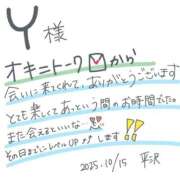 Y様
オキニトーク☑から
会いに来てくれて、ありがとうございます
とても楽しくてあっという間のお時間でした。
また会えるといいな
その日までにレベルUPがします!!
2025.10/15 平沢